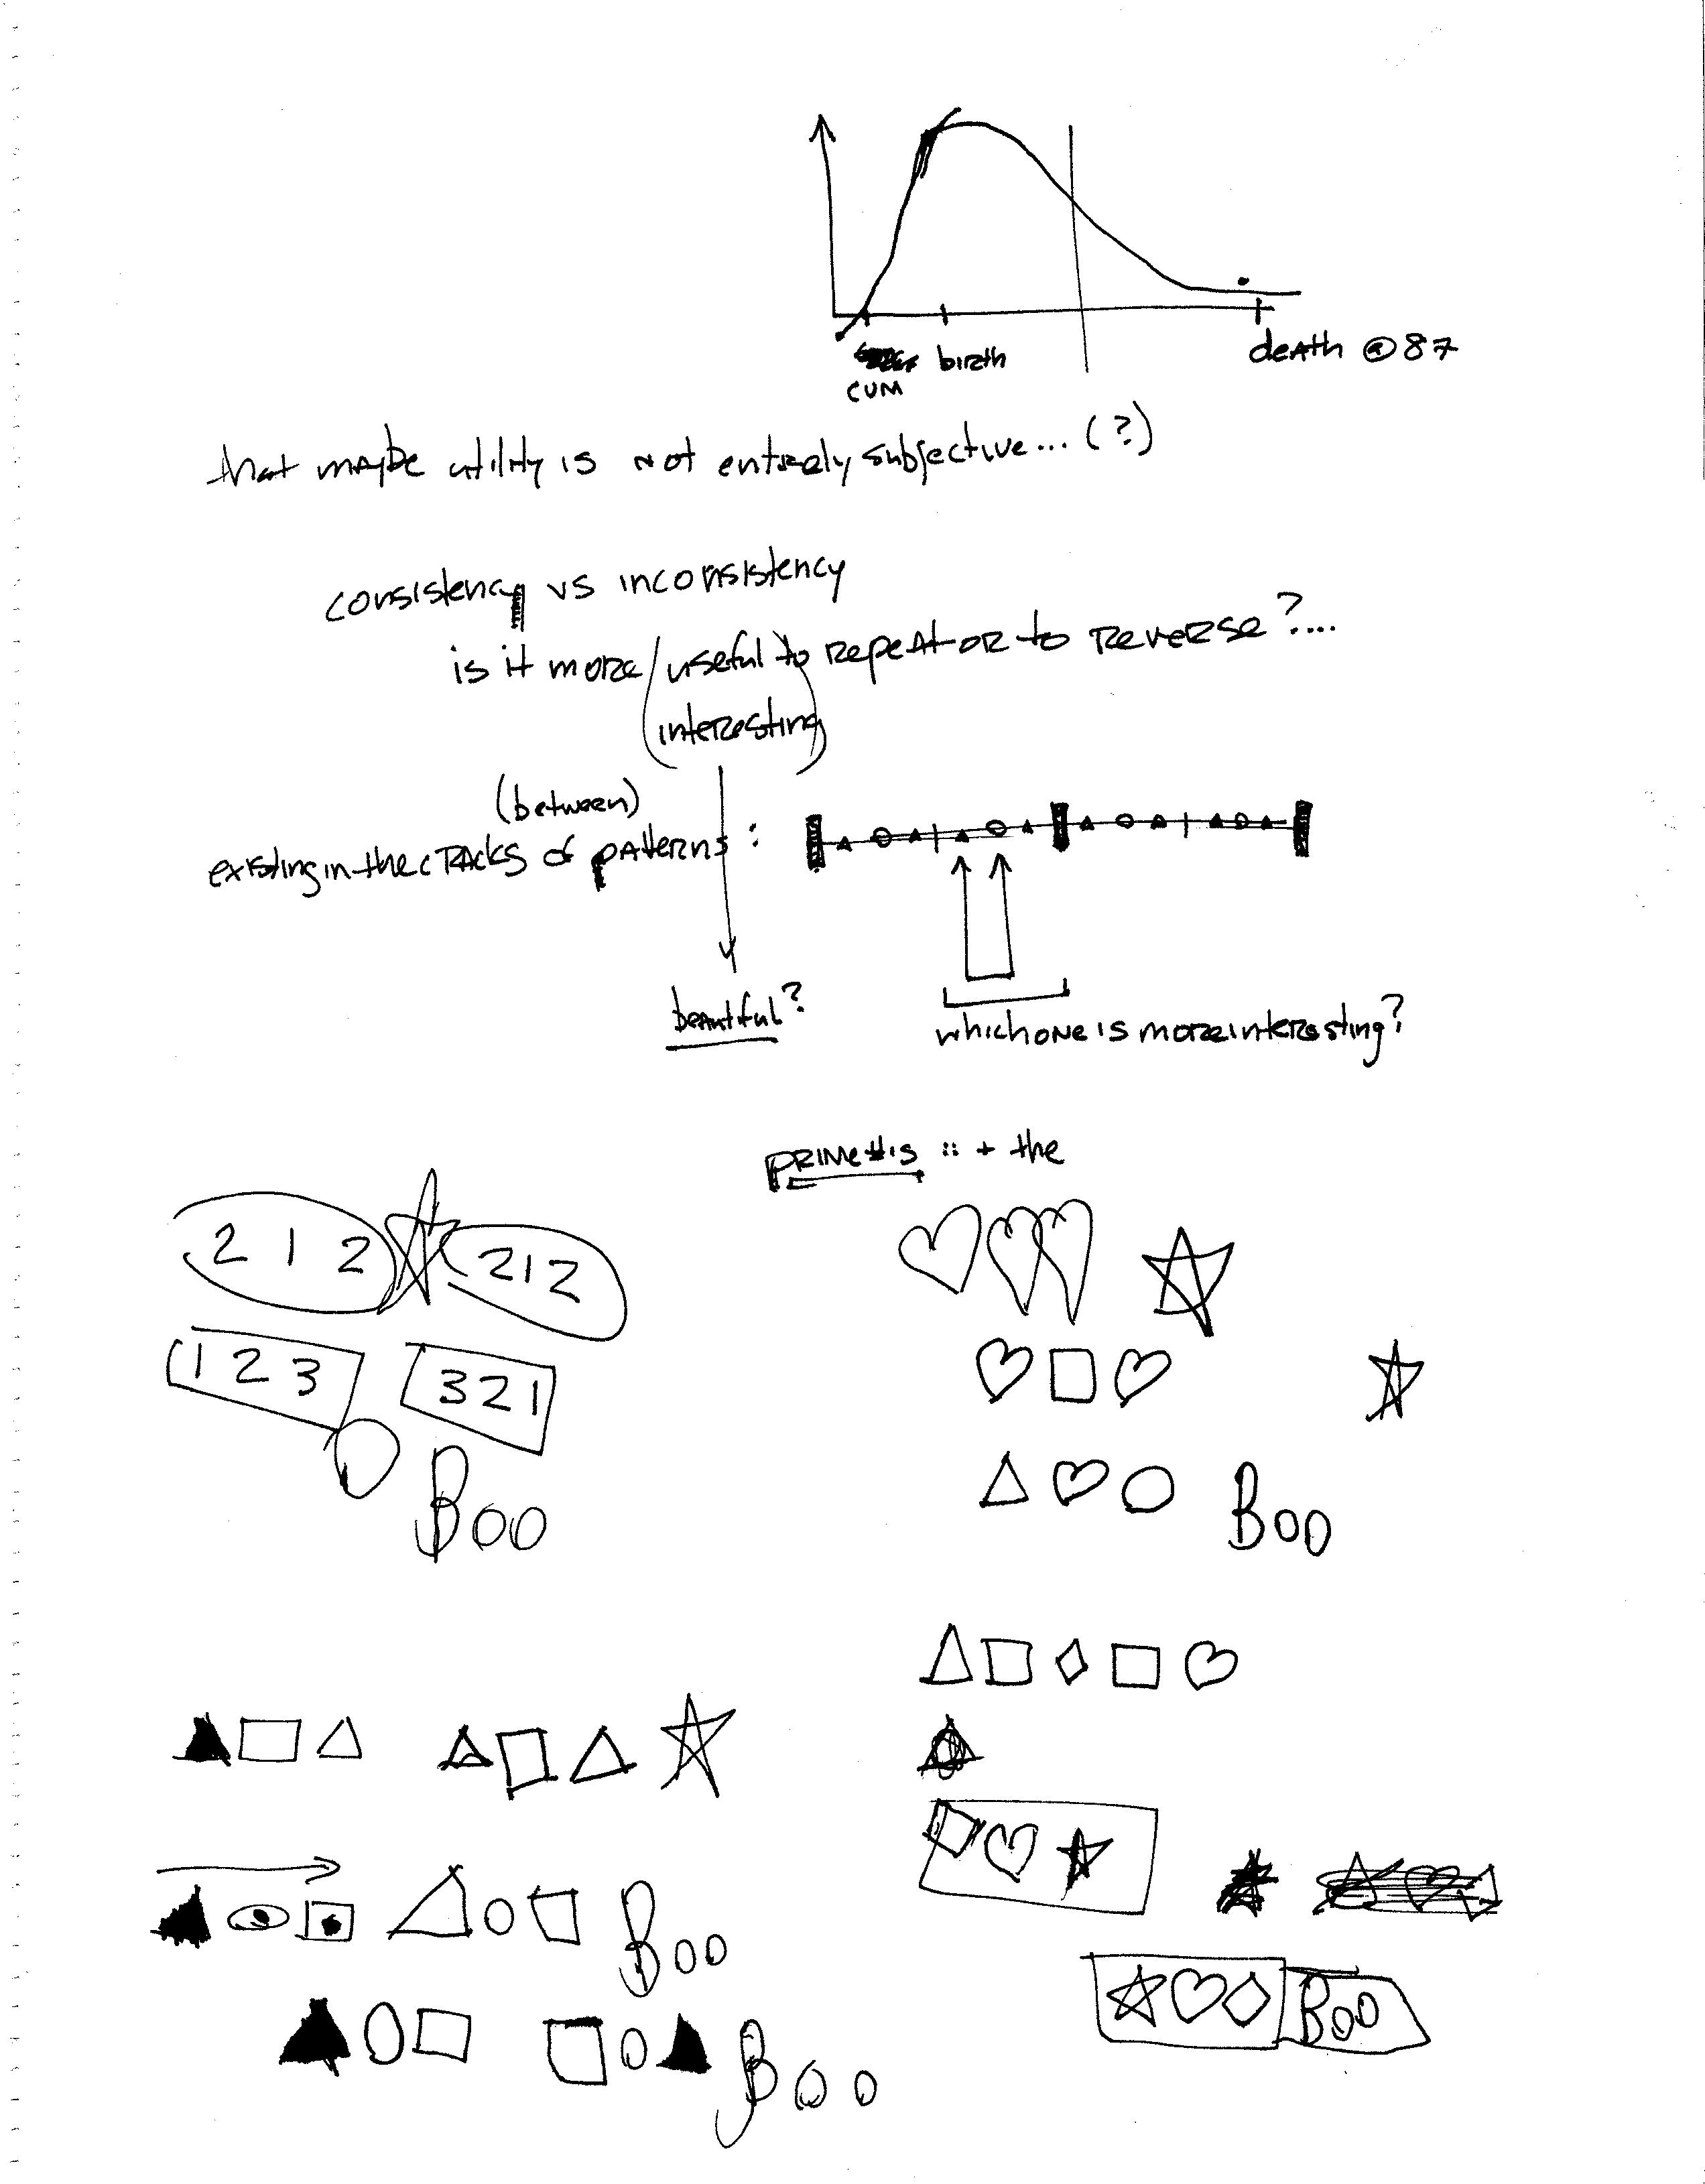 birth
death @ 87
CUM
that maybe utility is not entirely subjective... (?)
consistency vs inconsistency
is it more (useful to) repeat or to reverse?....
interesting
(between)
existing in the cracks of patterns :
beautiful?
which one is more interesting?
PRIME #'s :: + the
2 1 2 212
1 2 3 321
Boo
Boo
Boo
Boo
Boo